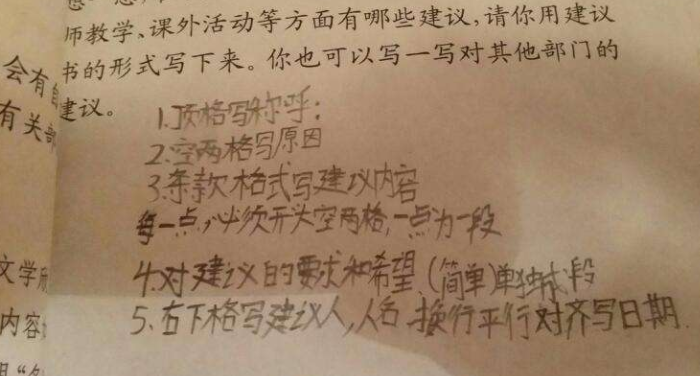 师教学、课外活动等方面有哪些建议,请你用建议
书的形式写下来。你也可以写一写对其他部门的
建议。
会有
有关部
1.顶格写称呼:
2.空两格写原因
3.条款格式写建议内容
每一点,必须开头空两格,一点为一段
4.对建议的要求和希望.(简单)单独成段
5.右下格写建议人,人名,换行平行对齐写日期.
文学
内容